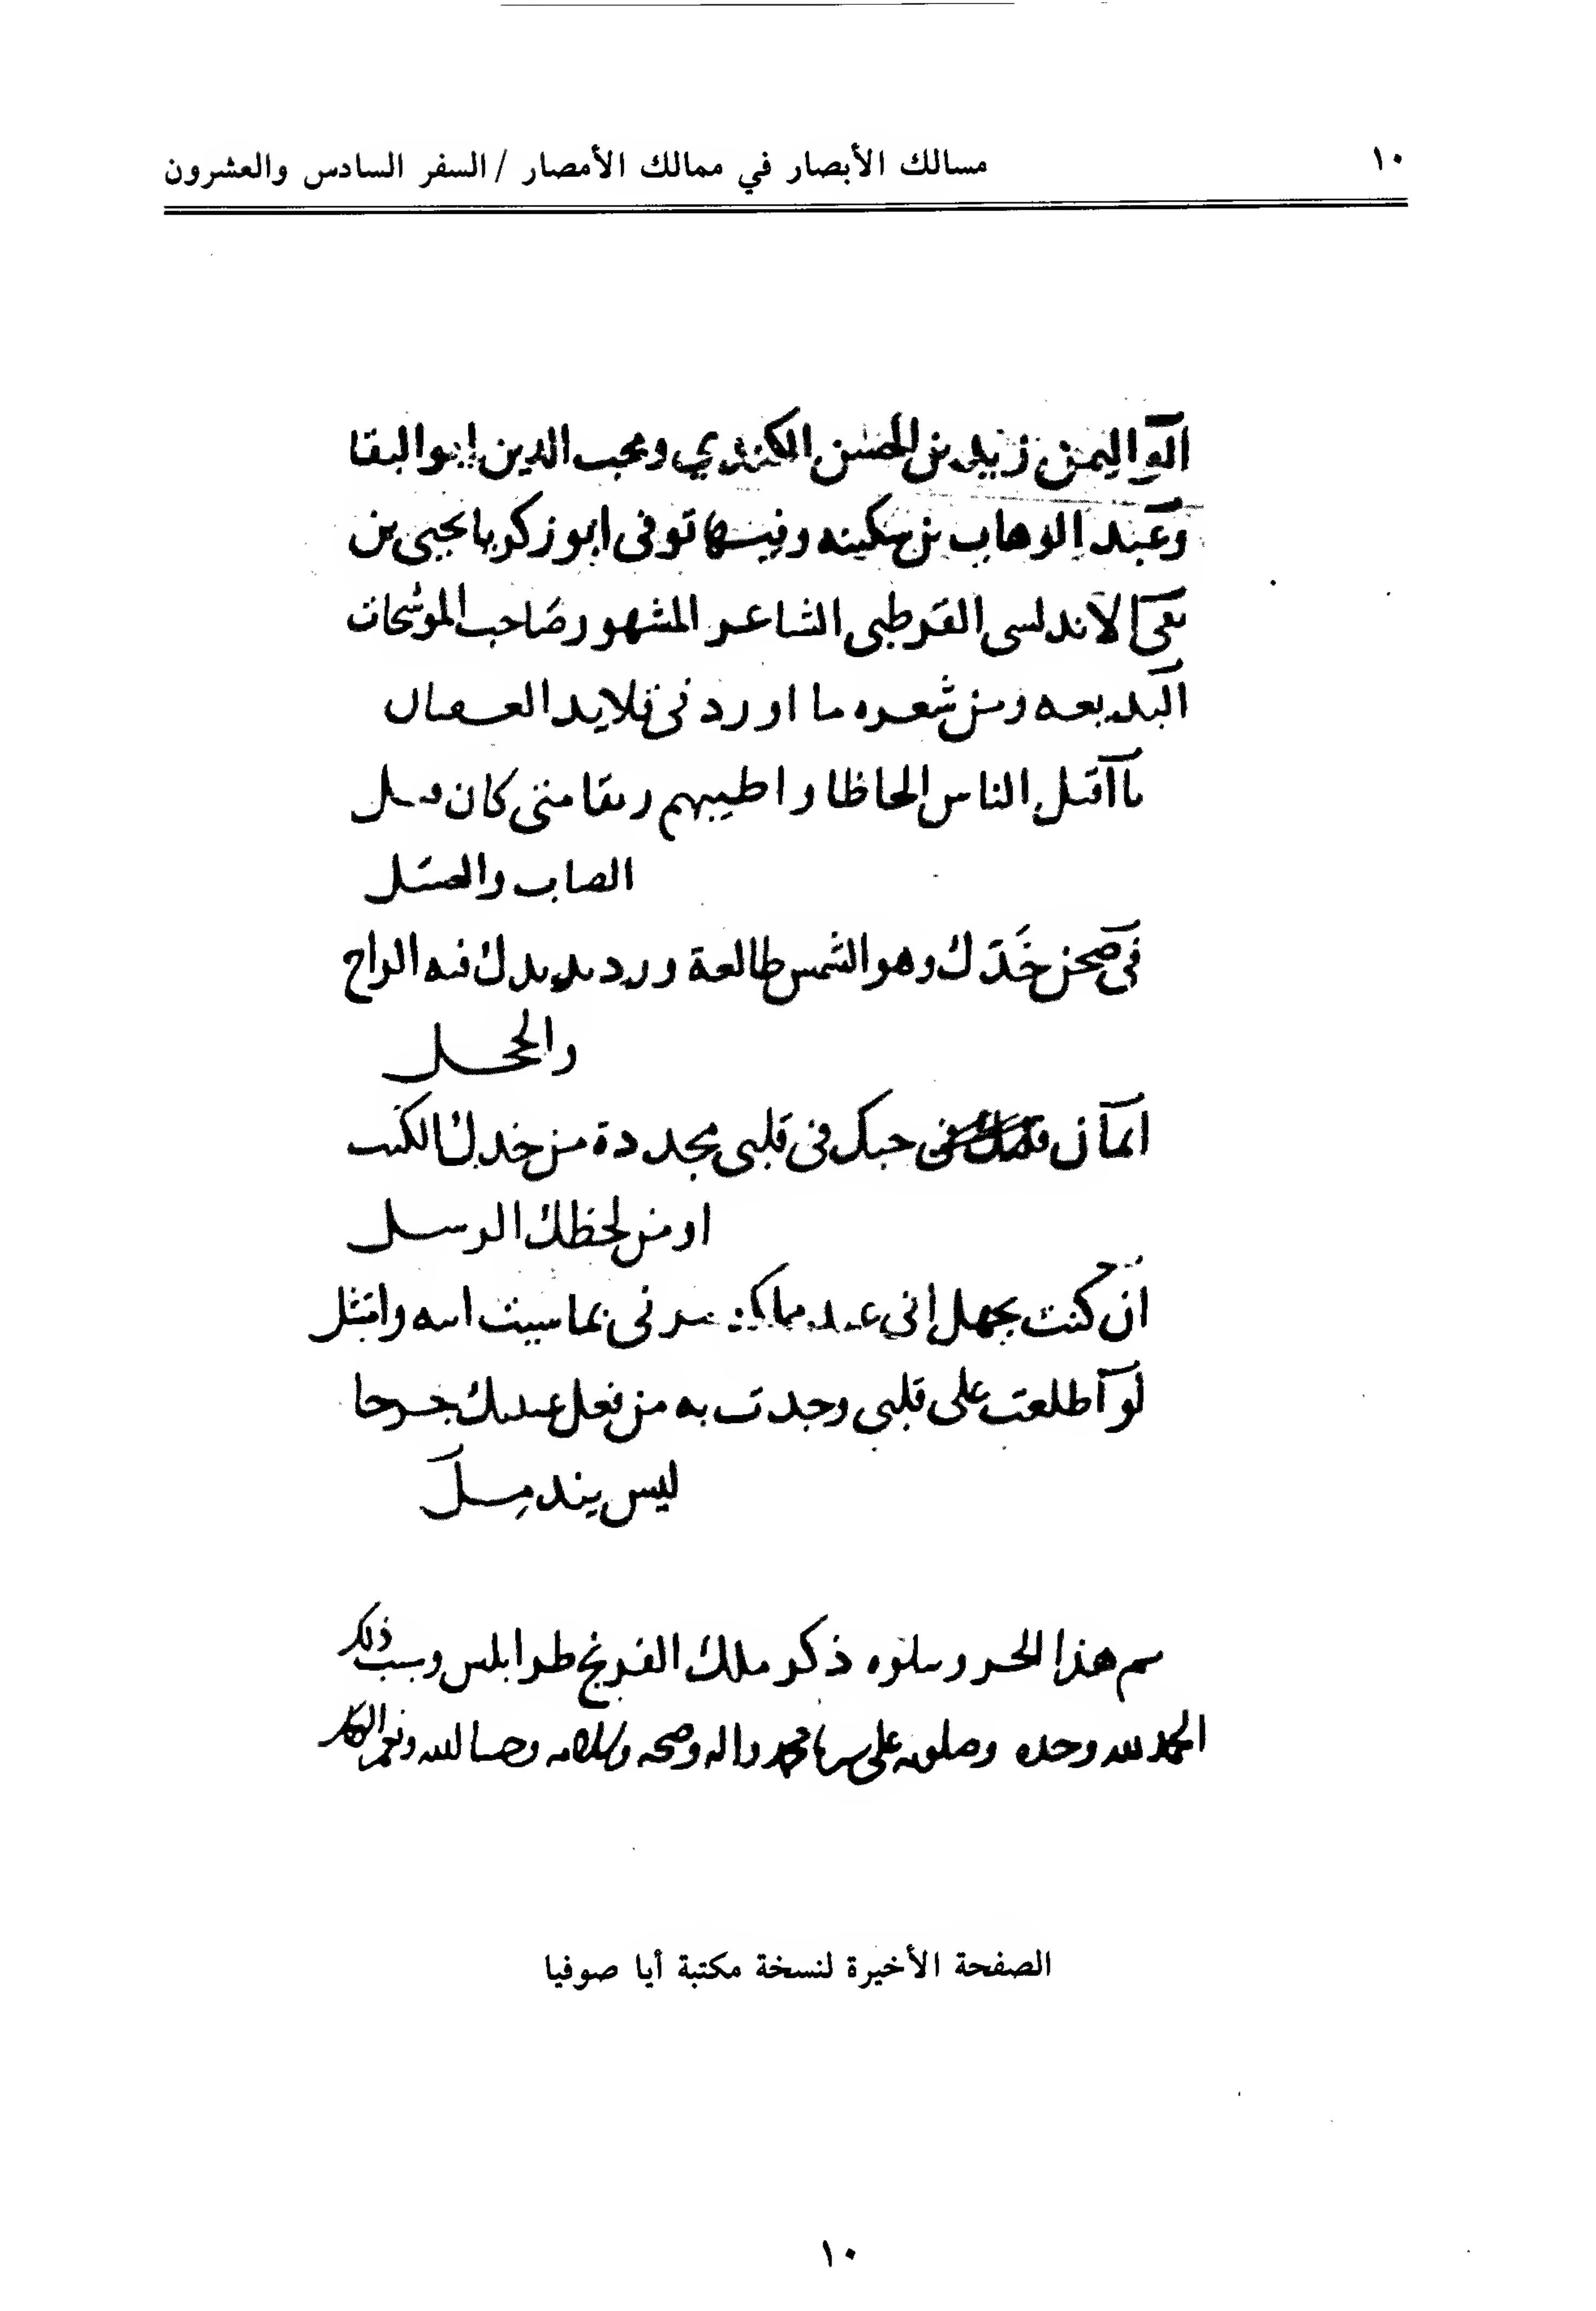 ١٠
مسالك الأبصار في ممالك الأمصار / السفر السادس والعشرون
ابو اليمن زيد بن الحسن الكندي ومحب الدين ابو البقا
وعبد الوهاب بن سكينه وفيها توفى ابو زكريا يحيى بن
بقى الاندلسى القرطبى الشاعر المشهور صاحب الموشحات
البديعه ومن شعره ما اورد فى قلايد العقيان
يا اقتل الناس الحاظا واطيبهم ريقا متى كان فيك
الصاب والعسل
فى صحن خدك وهو الشمس طالعة ورد يزيدك فيه الراح
والخجل
ايمان حبك فى قلبى مجددة من خدك الكتب
او من لحظك الرسل
ان كنت تجهل انى عبد مملكة مرنى بما شيت اته وامتثل
لو اطلعت على قلبى وجدت به من فعل عينيك جرحا
ليس يندمل
تم هذا الجز ويتلوه ذكر ملك الفرنج طرابلس وسبب ذلك
الحمد لله وحده وصلوته على سيدنا محمد واله وصحبه وسلامه وحسبنا الله ونعم الوكيل
الصفحة الأخيرة لنسخة مكتبة أيا صوفيا
١٠